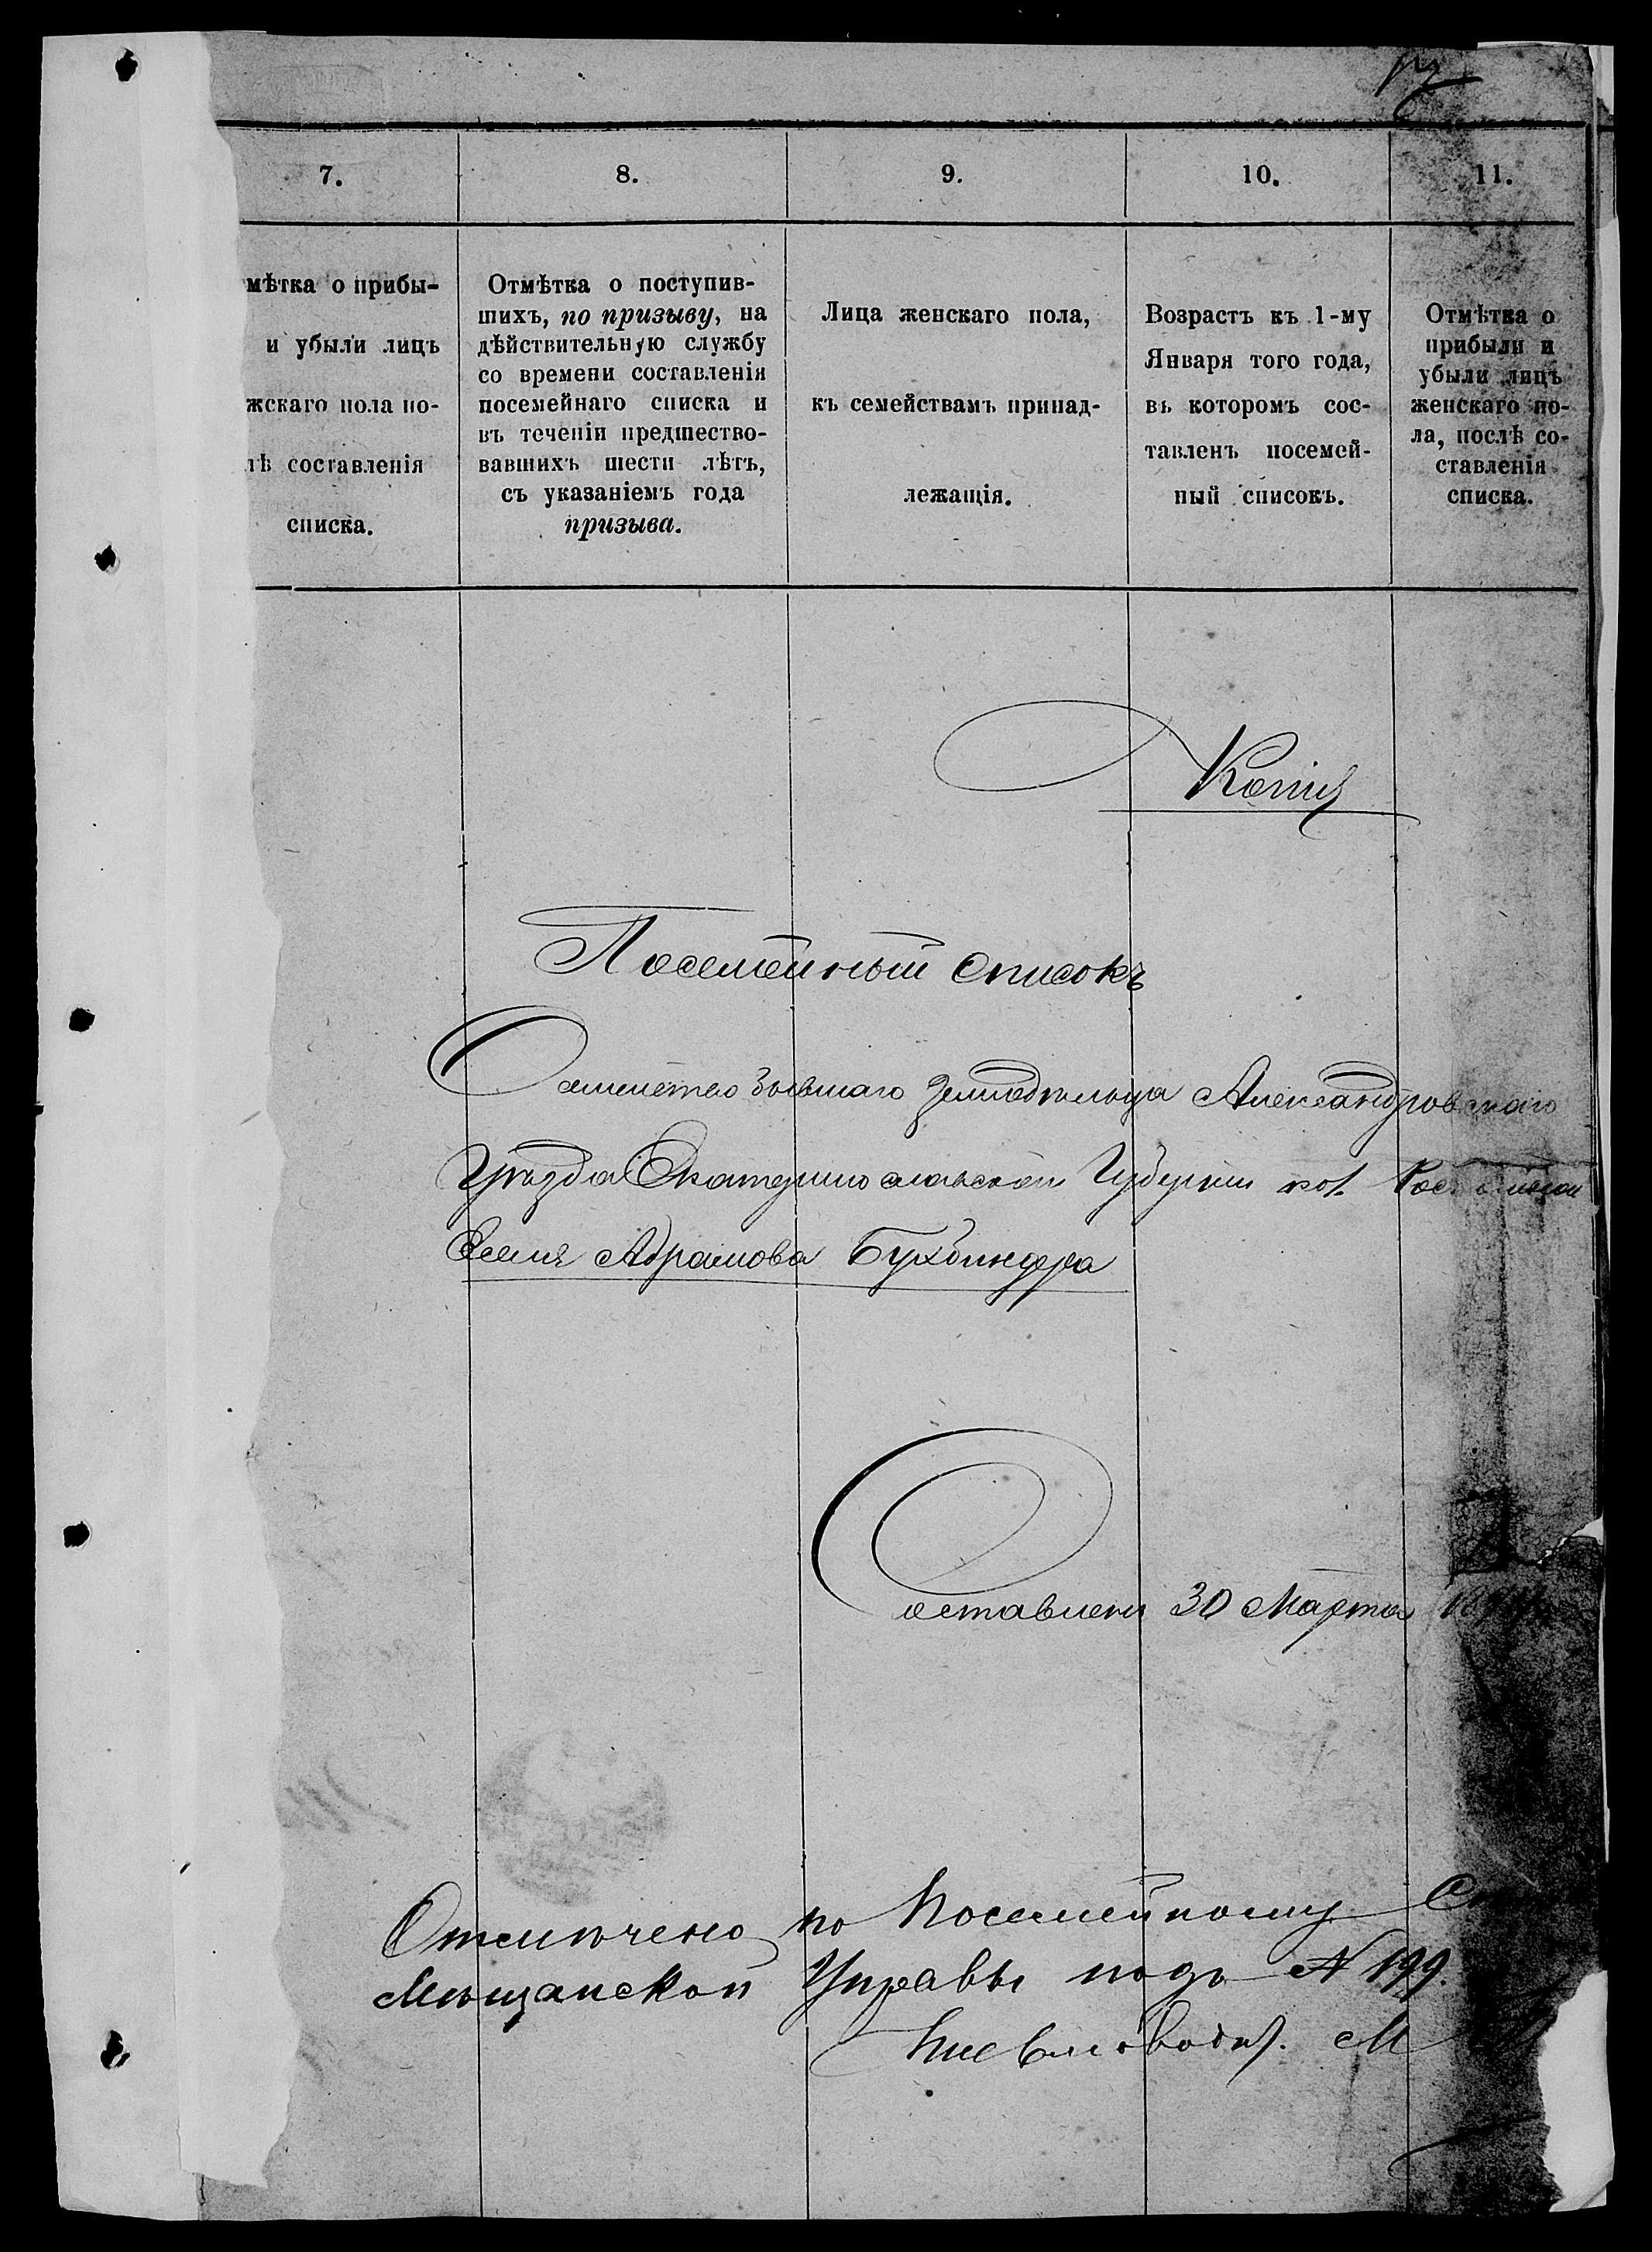 7. 8. 9. 10. 11.
мѣтка о прибы-
и убыли лицъ
жскаго пола по-
лѣ составленія
списка.
Отмѣтка о поступив-
шихъ, по призыву, на
дѣйствительную службу
со времени составленія
посемейнаго списка и
въ теченіи предшество-
вавшихъ шести лѣтъ,
съ указаніемъ года
призыва.
Лица женскаго пола,
къ семействамъ принад-
лежащія.
Возрастъ къ 1-му
Января того года,
въ которомъ сос-
тавленъ посемей-
ный списокъ.
Отмѣтка о
прибыли и
убыли лицъ
женскаго по-
ла, послѣ со-
ставленія
списка.
Копія
Посемейный списокъ
Семейство бывшаго земледѣльца Александровскаго
Уѣзда Екатеринославской Губерніи кол.
Абрамова Бухбиндера
Составленъ 30 Марта
Отмѣчено по Посемейному
Мѣщанской Управы подъ № 199.
М